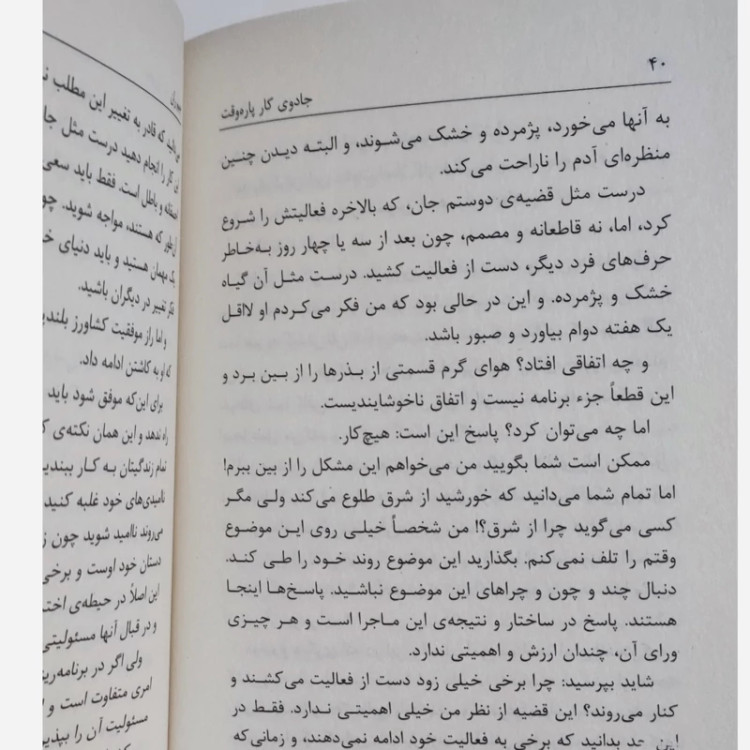 ۴۰
جادوی کار پاره‌وقت
به آنها می‌خورد، پژمرده و خشک می‌شوند، و البته دیدن چنین
منظره‌ای آدم را ناراحت می‌کند.
درست مثل قضیه‌ی دوستم جان، که بالاخره فعالیتش را شروع
کرد، اما، نه قاطعانه و مصمم، چون بعد از سه یا چهار روز به‌خاطر
حرف‌های فرد دیگر، دست از فعالیت کشید. درست مثل آن گیاه
خشک و پژمرده. و این در حالی بود که من فکر می‌کردم او لااقل
یک هفته دوام بیاورد و صبور باشد.
و چه اتفاقی افتاد؟ هوای گرم قسمتی از بذرها را از بین برد و
این قطعاً جزء برنامه نیست و اتفاق ناخوشایندیست.
اما چه می‌توان کرد؟ پاسخ این است: هیچ‌کار.
ممکن است شما بگویید من می‌خواهم این مشکل را از بین ببرم!
اما تمام شما می‌دانید که خورشید از شرق طلوع می‌کند ولی مگر
کسی می‌گوید چرا از شرق؟! من شخصاً خیلی روی این موضوع
وقتم را تلف نمی‌کنم. بگذارید این موضوع روند خود را طی کند.
دنبال چند و چون و چراهای این موضوع نباشید. پاسخ‌ها اینجا
هستند. پاسخ در ساختار و نتیجه‌ی این ماجرا است و هر چیزی
ورای آن، چندان ارزش و اهمیتی ندارد.
شاید بپرسید: چرا برخی خیلی زود دست از فعالیت می‌کشند و
کنار می‌روند؟ این قضیه از نظر من خیلی اهمیتی ندارد. فقط در
این حد بدانید که برخی به فعالیت خود ادامه نمی‌دهند، و زمانی‌که
که قادر به تغییر این مطلب
کار را انجام دهید درست مثل
و باطل است. فقط باید سعی
که هستند، مواجه شوید.
یک مهمان هستید و باید دنیای
فکر تغییر در دیگران باشید.
و اما راز موفقیت کشاورز
که او به کاشتن ادامه داد.
برای این‌که موفق شود باید
راه ندهد و این همان نکته‌ی
تمام زندگیتان به کار
ناامیدی‌های خود غلبه کنید
می‌روند ناامید شوید چون
دستان خود اوست و برخی
این اصلاً در حیطه‌ی
و در قبال آنها مسئولیتی
ولی اگر در
امری متفاوت است و
مسئولیت آن را